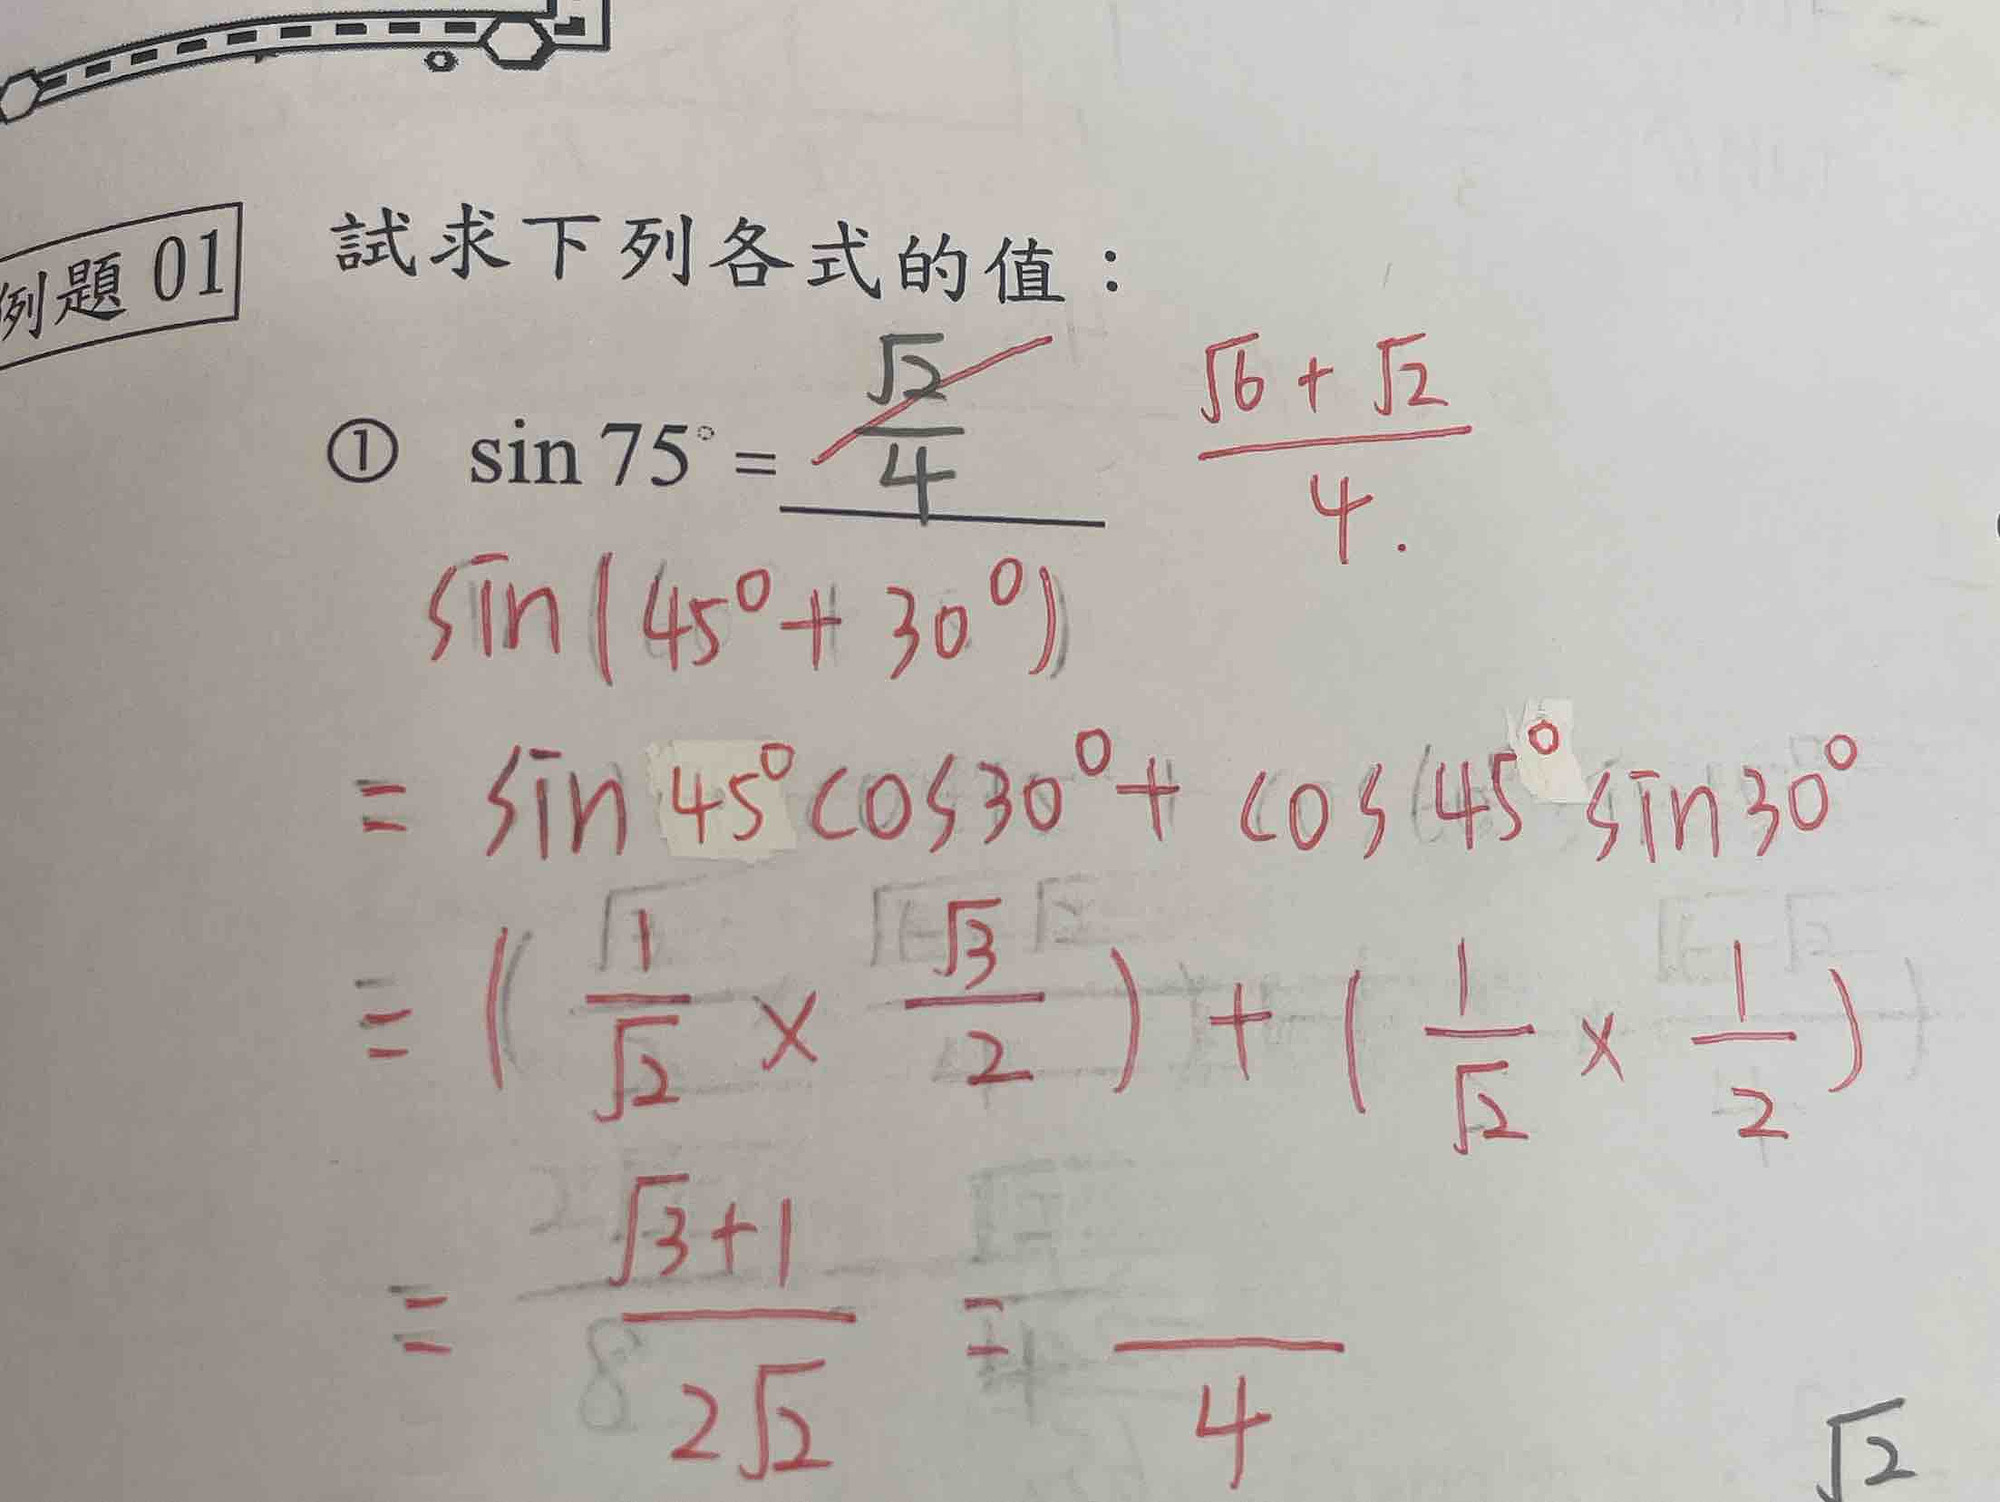 例題 01 試求下列各式的值：
① sin 75° = √2/4 (√6 + √2)/4.
sin(45° + 30°)
= sin 45° cos 30° + cos 45° sin 30°
= (1/√2 × √3/2) + (1/√2 × 1/2)
= (√3+1)/(2√2) = /4
√2